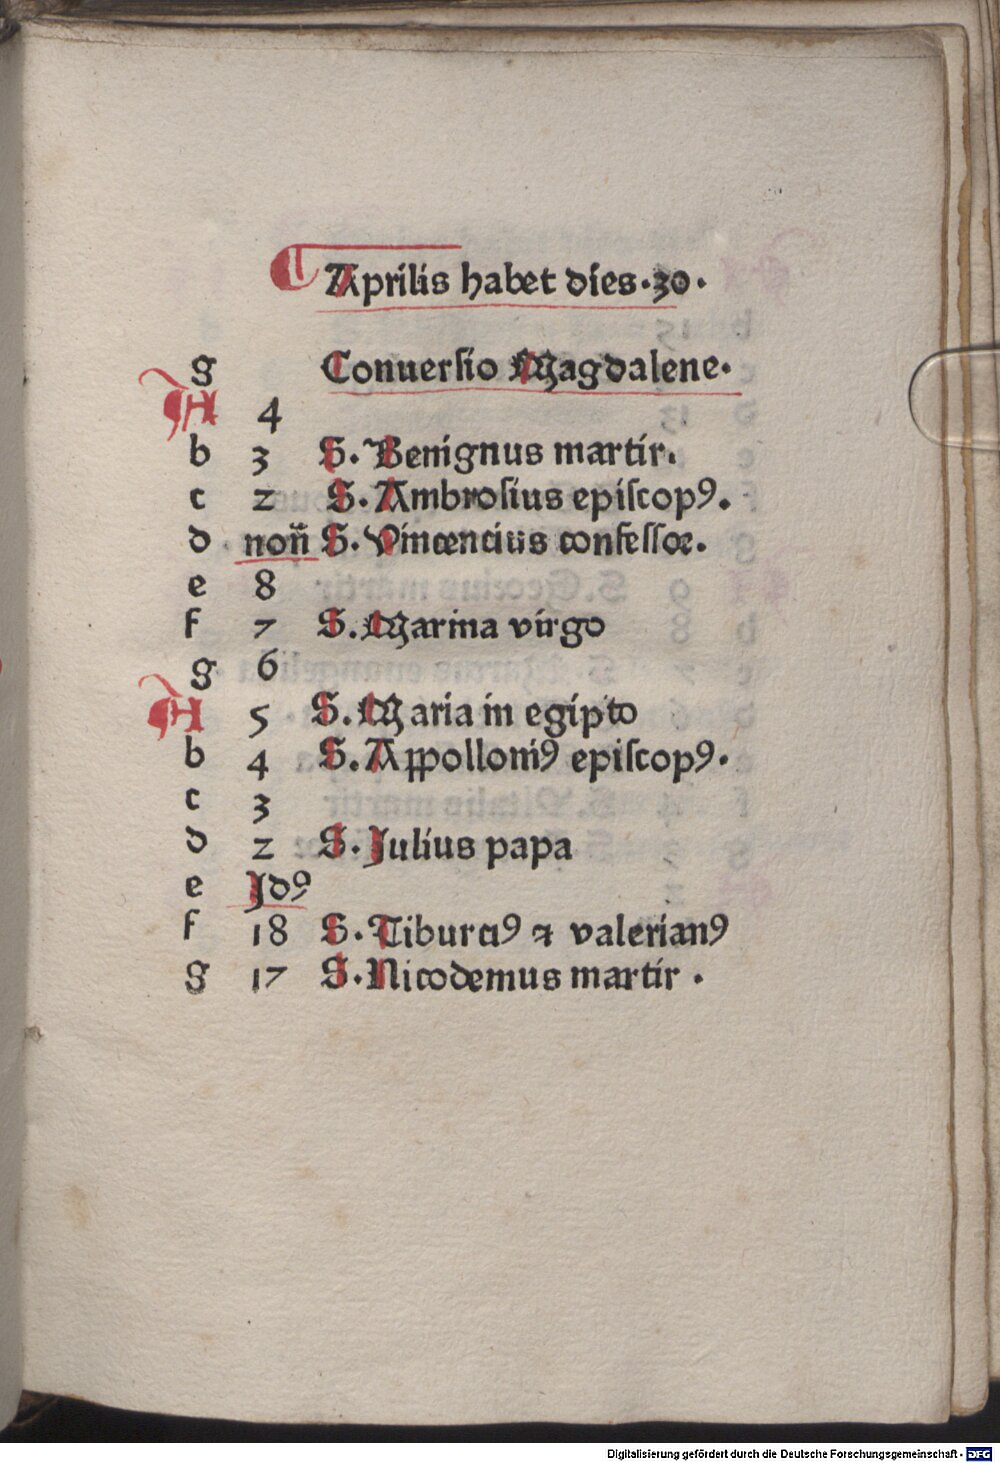 Aprilis habet dies·30·
g Conuersio Magdalene·
A 4
b 3 S. Benignus martir.
c 2 S. Ambrosius episcopꝰ.
d non̄ S. Vincencius confessor.
e 8
f 7 S. Marina virgo
g 6
A 5 S. Maria in egipto
b 4 S. Appolloniꝰ episcopꝰ·
c 3
d 2 S. Julius papa
e Jdꝰ
f 18 S. Tiburciꝰ ⁊ valerianꝰ
g 17 S. Nicodemus martir ·
Digitalisierung gefördert durch die Deutsche Forschungsgemeinschaft - DFG